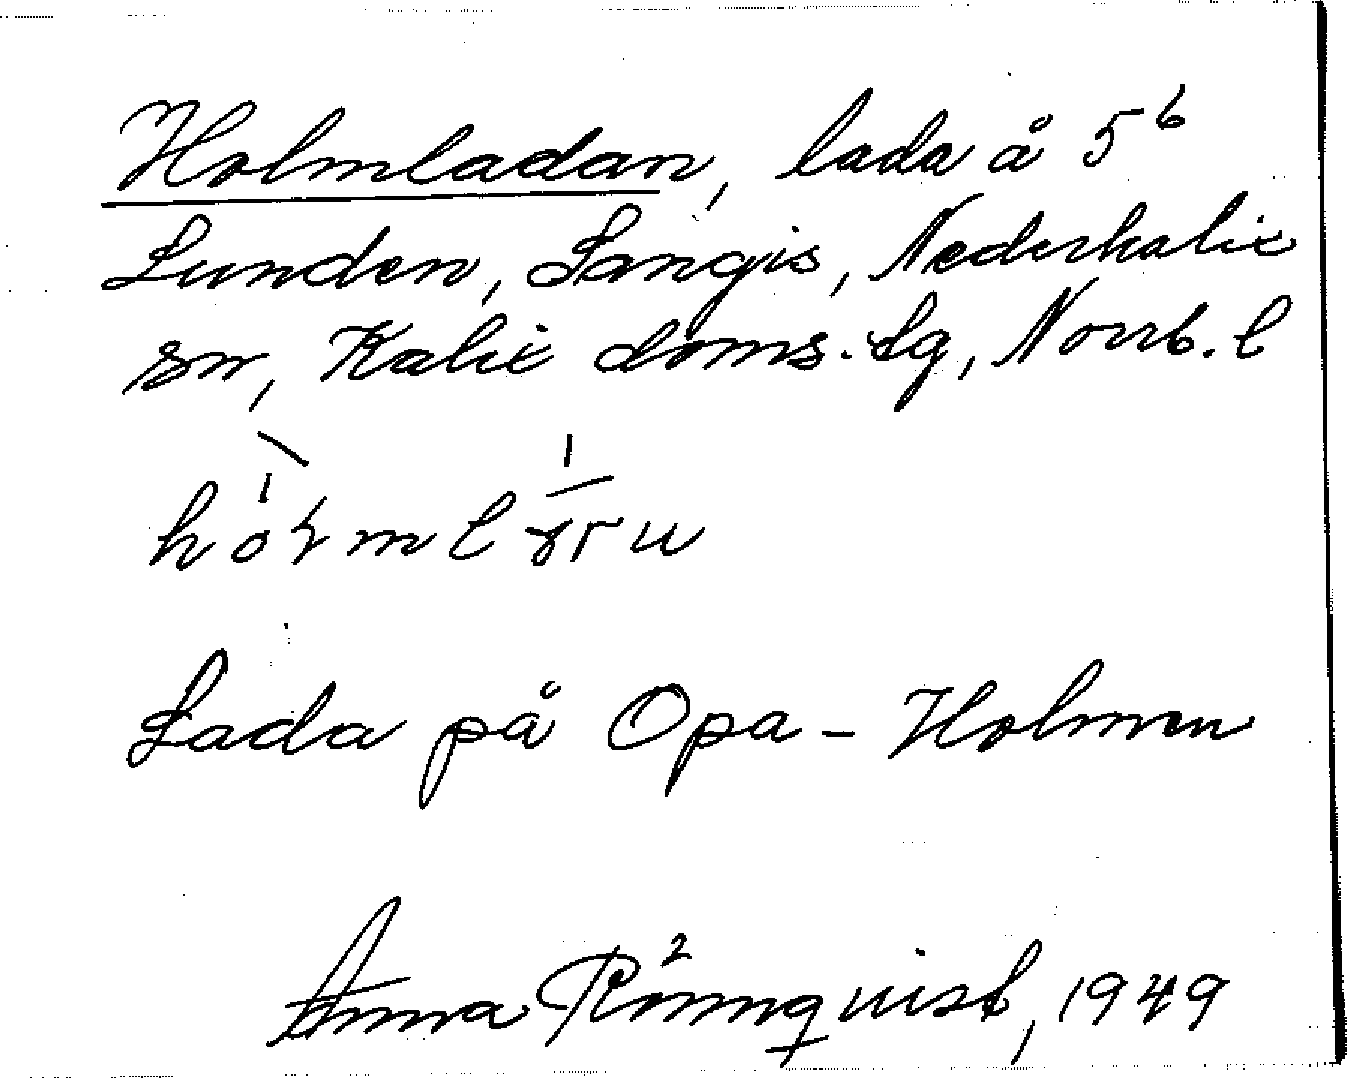 Holmladan, lada å 5⁶
Lunden, Sangis, Nederkalix
sn, Kalix doms.lg, Norrb. l
Lada på Opa-Holmen
Anna Rönnquist, 1949